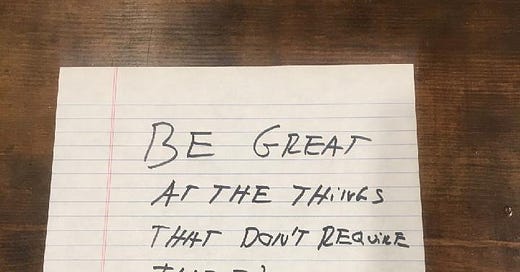 BE GREAT
AT THE THiNGS
THAT DON'T REQUiRE